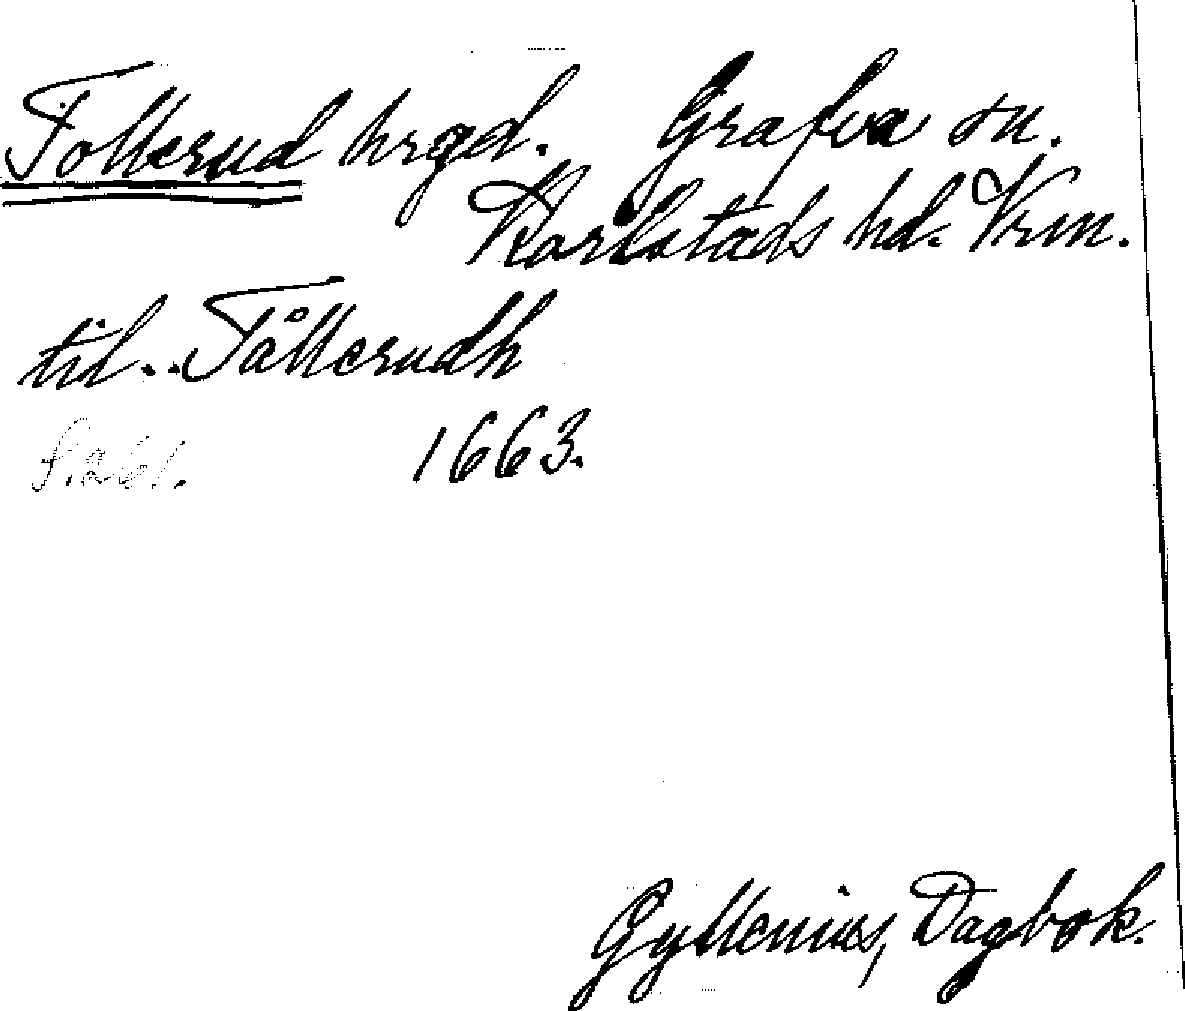 Tollerud hrgd. Grafva sn.
Karlstads hd. Vrm.
til.. Tållerudh
S. 261. 1663.
Gyllenius, Dagbok.